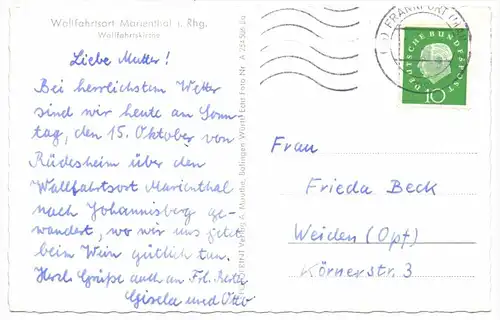 Wallfahrtsort Marienthal i. Rhg.
Wallfahrtskirche
Liebe Mutter!
Bei herrlichstem Wetter
sind wir heute am Sonn-
tag, den 15. Oktober von
Rüdesheim über den
Wallfahrtsort Marienthal
nach Johannisberg ge-
wandert, wo wir uns jetzt
beim Wein gütlich tun.
Herzl. Grüße auch an Frl.
Gisela und Otto
FRANKFURT
DEUTSCHE BUNDESPOST
10
Frau
Frieda Beck
Weiden (Opf)
Körnerstr. 3